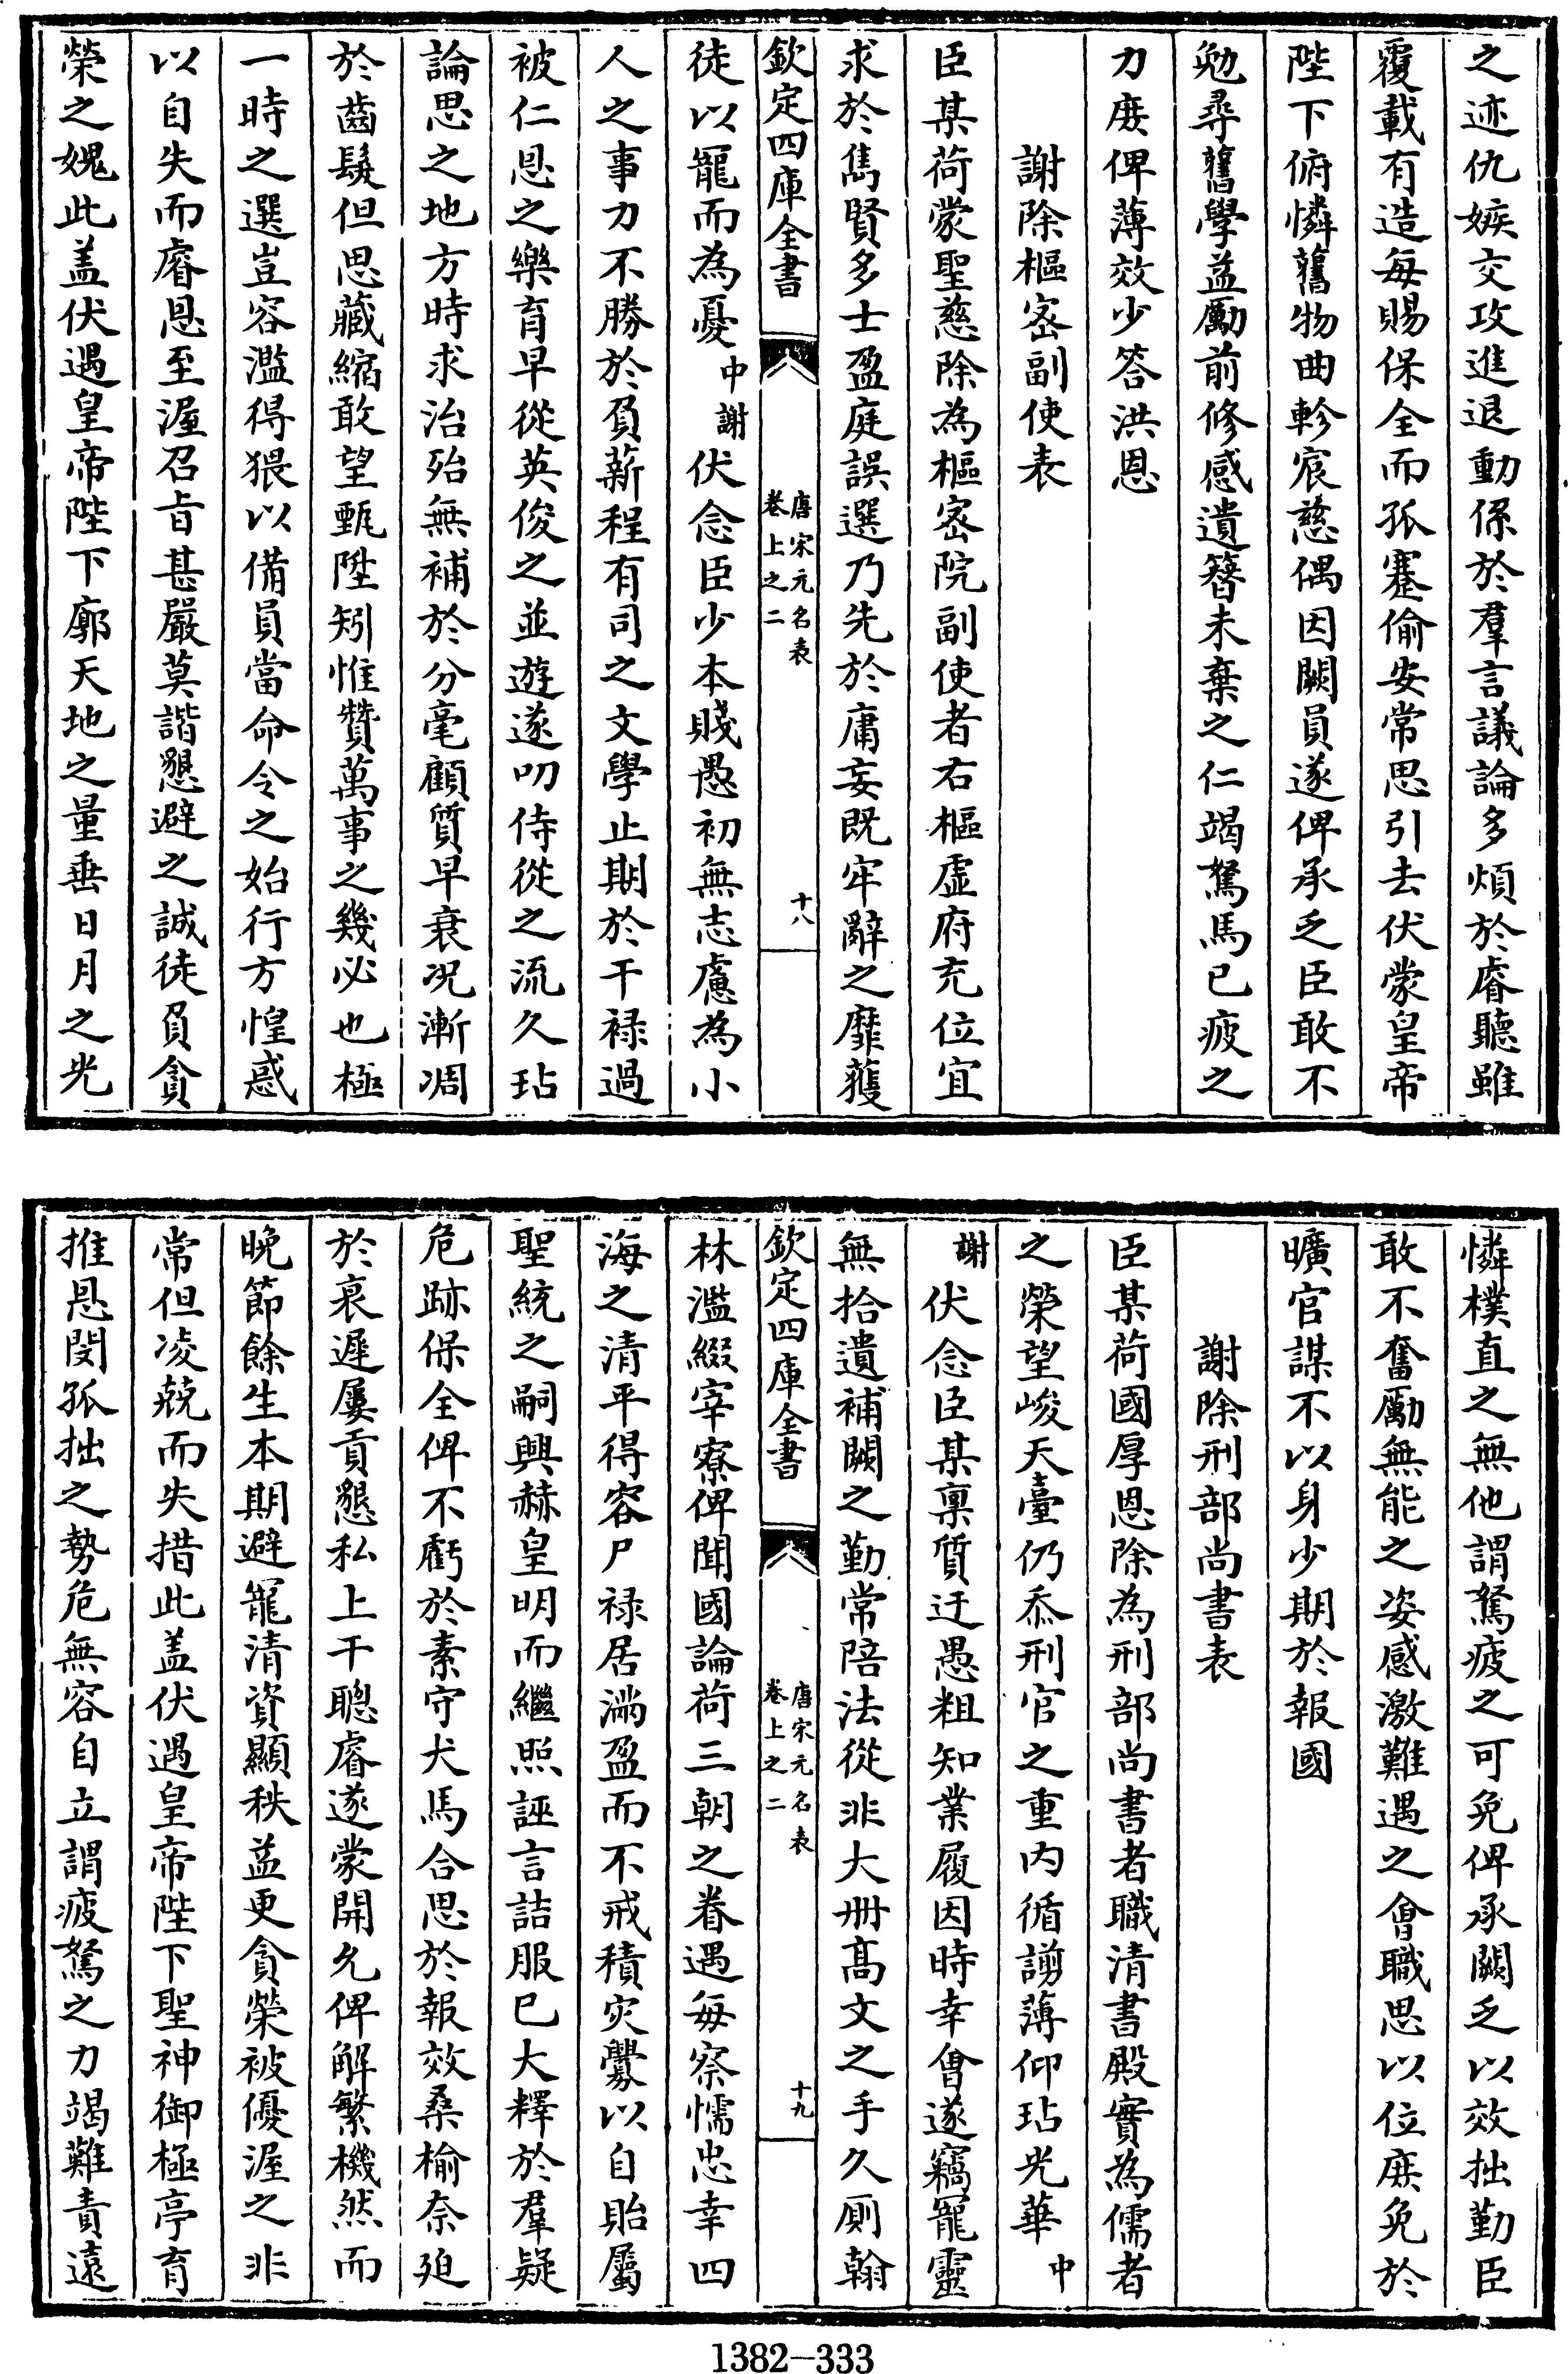 之迹仇嫉交攻進退動係於羣言議論多煩於睿聽雖
覆載有造毎賜保全而孤蹇偷安常思引去伏蒙皇帝
陛下俯憐舊物曲軫宸慈偶因闕員遂俾承乏臣敢不
勉尋舊學益勵前修感遺簪未棄之仁竭駑馬已疲之
力庶俾薄效少答洪恩
謝除樞密副使表
臣某荷蒙聖慈除為樞密院副使者右樞虛府充位宜
求於雋賢多士盈庭誤選乃先於庸妄既牢辭之靡獲
欽定四庫全書
唐宋元名表
卷上之二
十八
徒以寵而為憂中謝伏念臣少本賤愚初無志慮為小
人之事力不勝於負薪程有司之文學止期於干祿過
被仁恩之樂育早從英俊之並遊遂叨侍從之流久玷
論思之地方時求治殆無補於分毫顧質早衰况漸凋
於齒髮但思藏縮敢望甄陞矧惟贊萬事之幾必也極
一時之選豈容濫得猥以備員當命令之始行方惶惑
以自失而睿恩至渥召旨甚嚴莫諧懇避之誠徒負貪
榮之媿此盖伏遇皇帝陛下廓天地之量垂日月之光
憐樸直之無他謂駑疲之可免俾承闕乏以效拙勤臣
敢不奮勵無能之姿感激難遇之會職思以位庶免於
曠官謀不以身少期於報國
謝除刑部尚書表
臣某荷國厚恩除為刑部尚書者職清書殿實為儒者
之榮望峻天臺仍忝刑官之重內循譾薄仰玷光華中
謝伏念臣某稟質迂愚粗知業履因時幸會遂竊寵靈
無拾遺補闕之勤常陪法從非大冊髙文之手久厠翰
欽定四庫全書
唐宋元名表
卷上之二
十九
林濫綴宰寮俾聞國論荷三朝之眷遇毎察懦忠幸四
海之清平得容尸祿居滿盈而不戒積灾釁以自貽屬
聖統之嗣興赫皇明而繼照誣言詰服巳大釋於羣疑
危跡保全俾不虧於素守犬馬合思於報效桑榆奈廹
於衰遲屢貢懇私上干聰睿遂蒙開允俾解繁機然而
晚節餘生本期避寵清資顯秩益更貪榮被優渥之非
常但凌兢而失措此盖伏遇皇帝陛下聖神御極亭育
推恩閔孤拙之勢危無容自立謂疲駑之力竭難責遠
1382-333